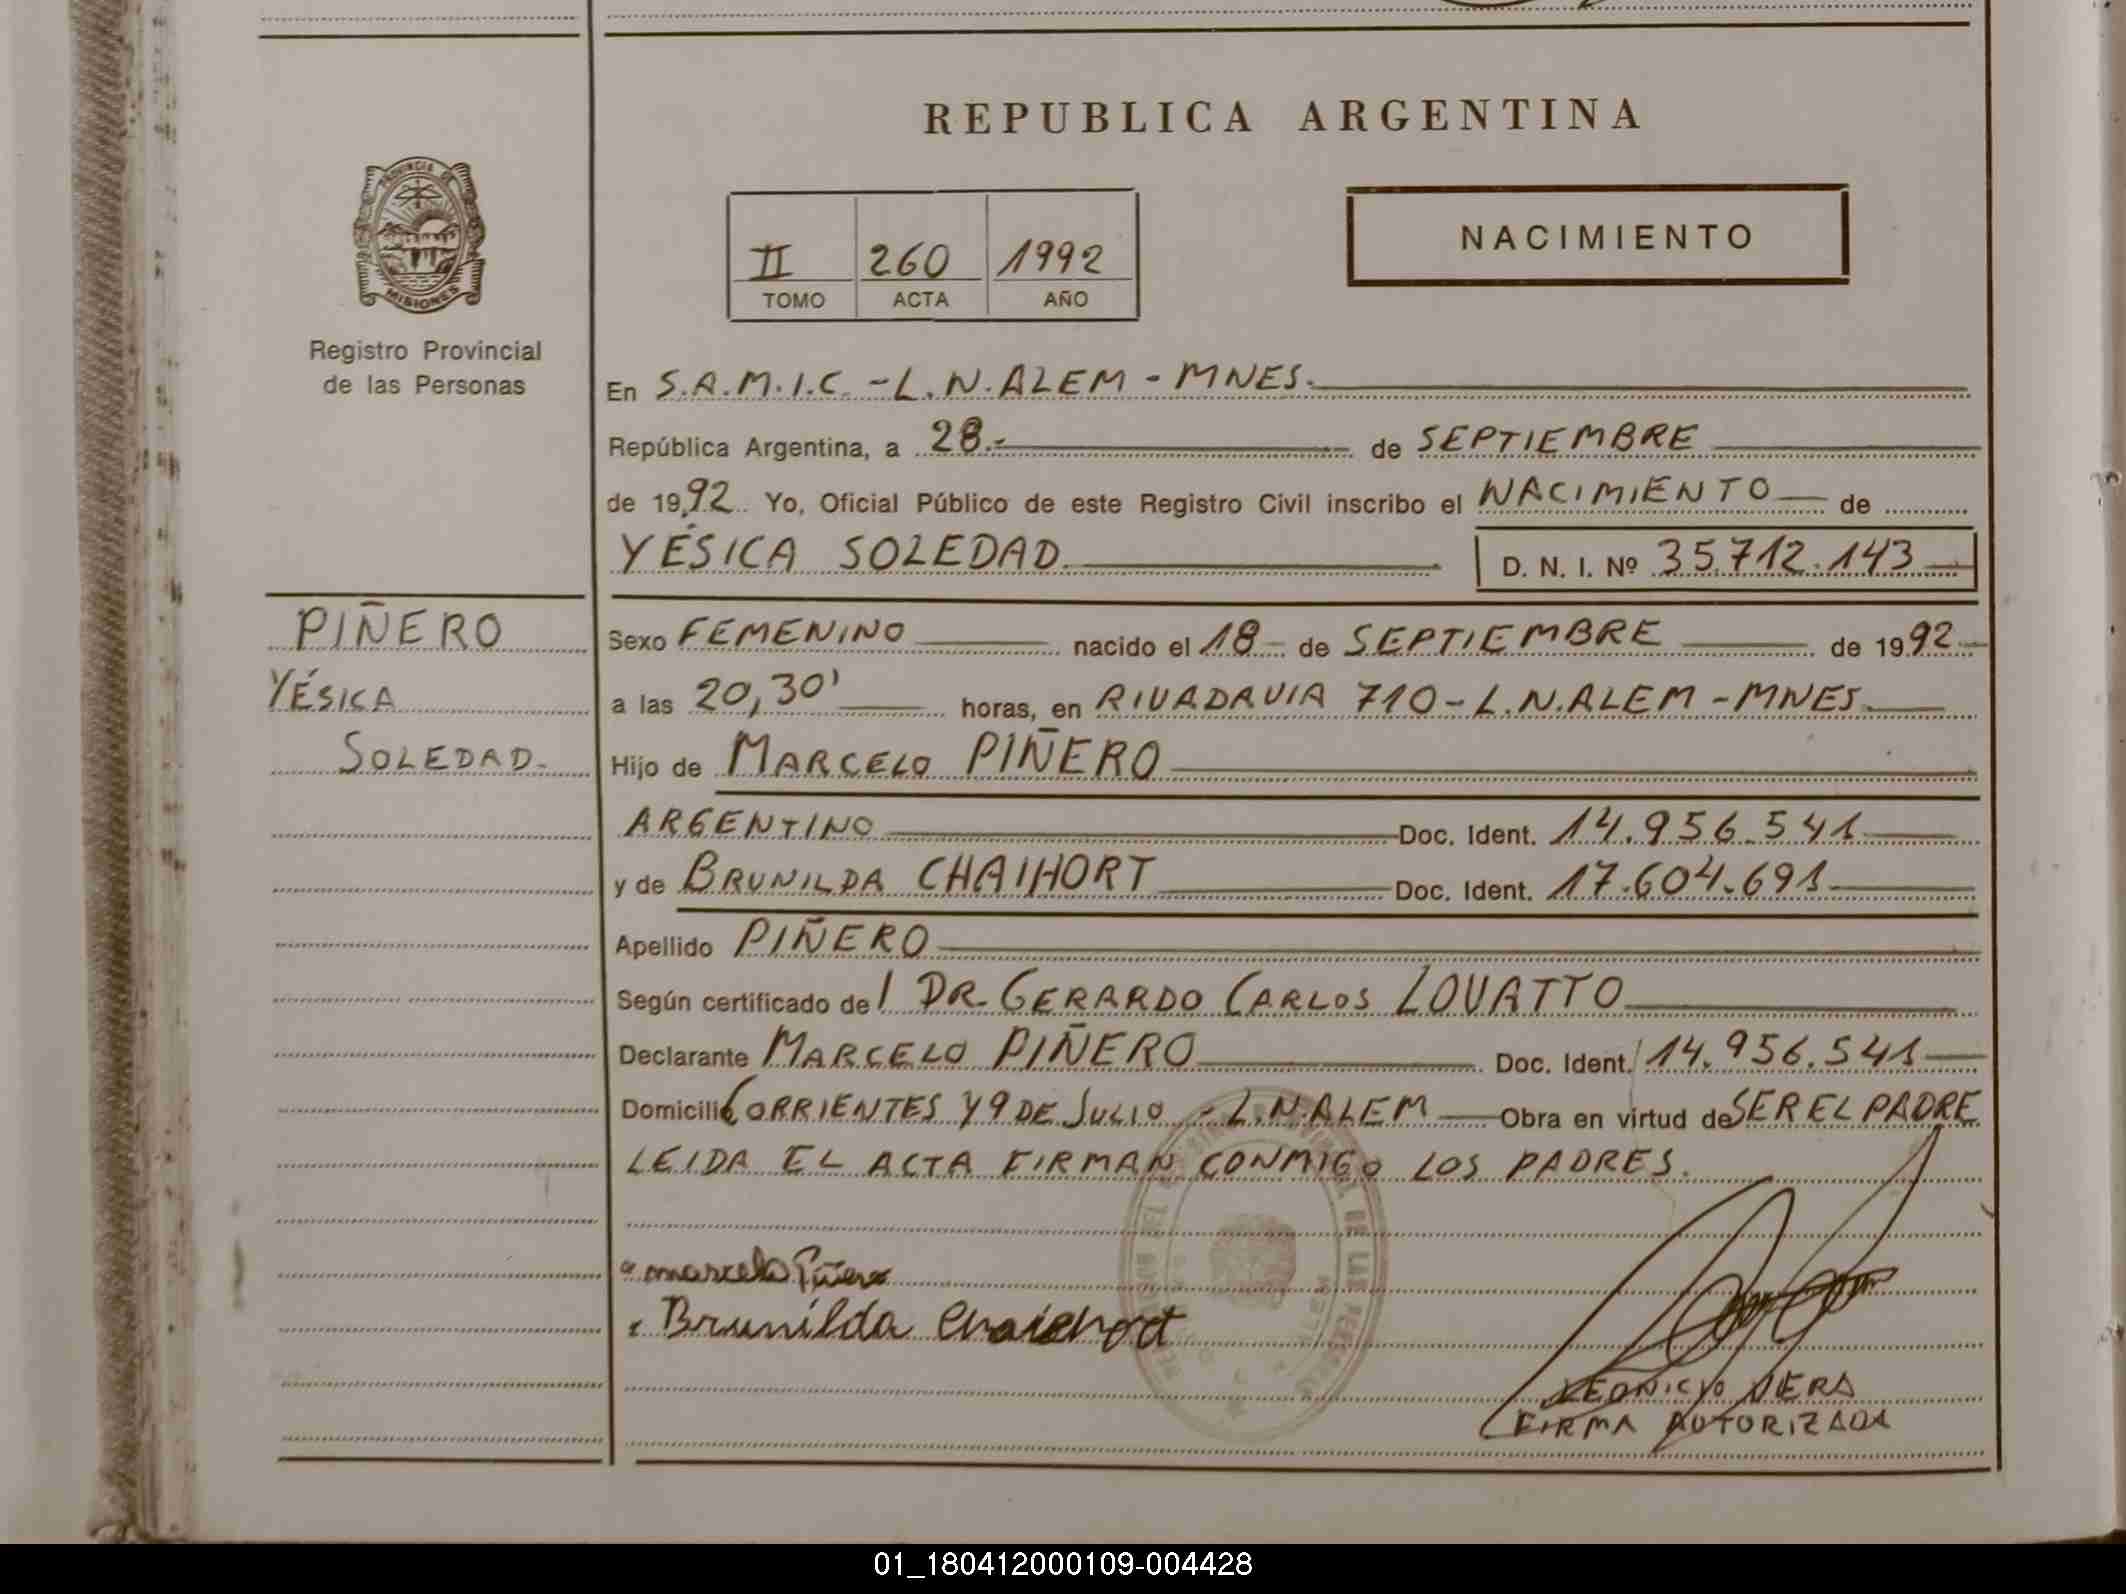 REPUBLICA ARGENTINA
PROVINCIA DE
MISIONES
Registro Provincial
de las Personas
II 260 1992
TOMO ACTA AÑO
NACIMIENTO
En S.A.M.I.C. - L.N. ALEM - MNES.
República Argentina, a 28.- de SEPTIEMBRE
de 1992 Yo, Oficial Público de este Registro Civil inscribo el NACIMIENTO de
YÉSICA SOLEDAD.
D. N. I. Nº 35.712.143
PIÑERO
YÉSICA
SOLEDAD.
Sexo FEMENINO nacido el 18 de SEPTIEMBRE de 1992
a las 20,30' horas, en RIVADAVIA 710 - L.N. ALEM - MNES.
Hijo de MARCELO PIÑERO
ARGENTINO Doc. Ident. 14.956.541
y de BRUNILDA CHAIHORT Doc. Ident. 17.604.691
Apellido PIÑERO
Según certificado del DR. GERARDO CARLOS LOVATTO
Declarante MARCELO PIÑERO Doc. Ident. 14.956.541
Domicilio CORRIENTES Y 9 DE JULIO - L.N. ALEM Obra en virtud de SER EL PADRE
LEIDA EL ACTA FIRMAN CONMIGO LOS PADRES.
marcelo Piñero
Brunilda Chaichort
LEONICIO VERA
FIRMA AUTORIZADA
01_180412000109-004428